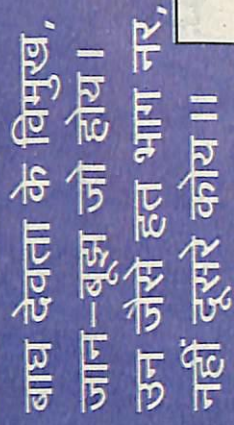 बाघ देवता के विमुख,
जान-बूझ जो होय।
उन जैसे हत भाग नर,
नहीं दूसरे कोय॥